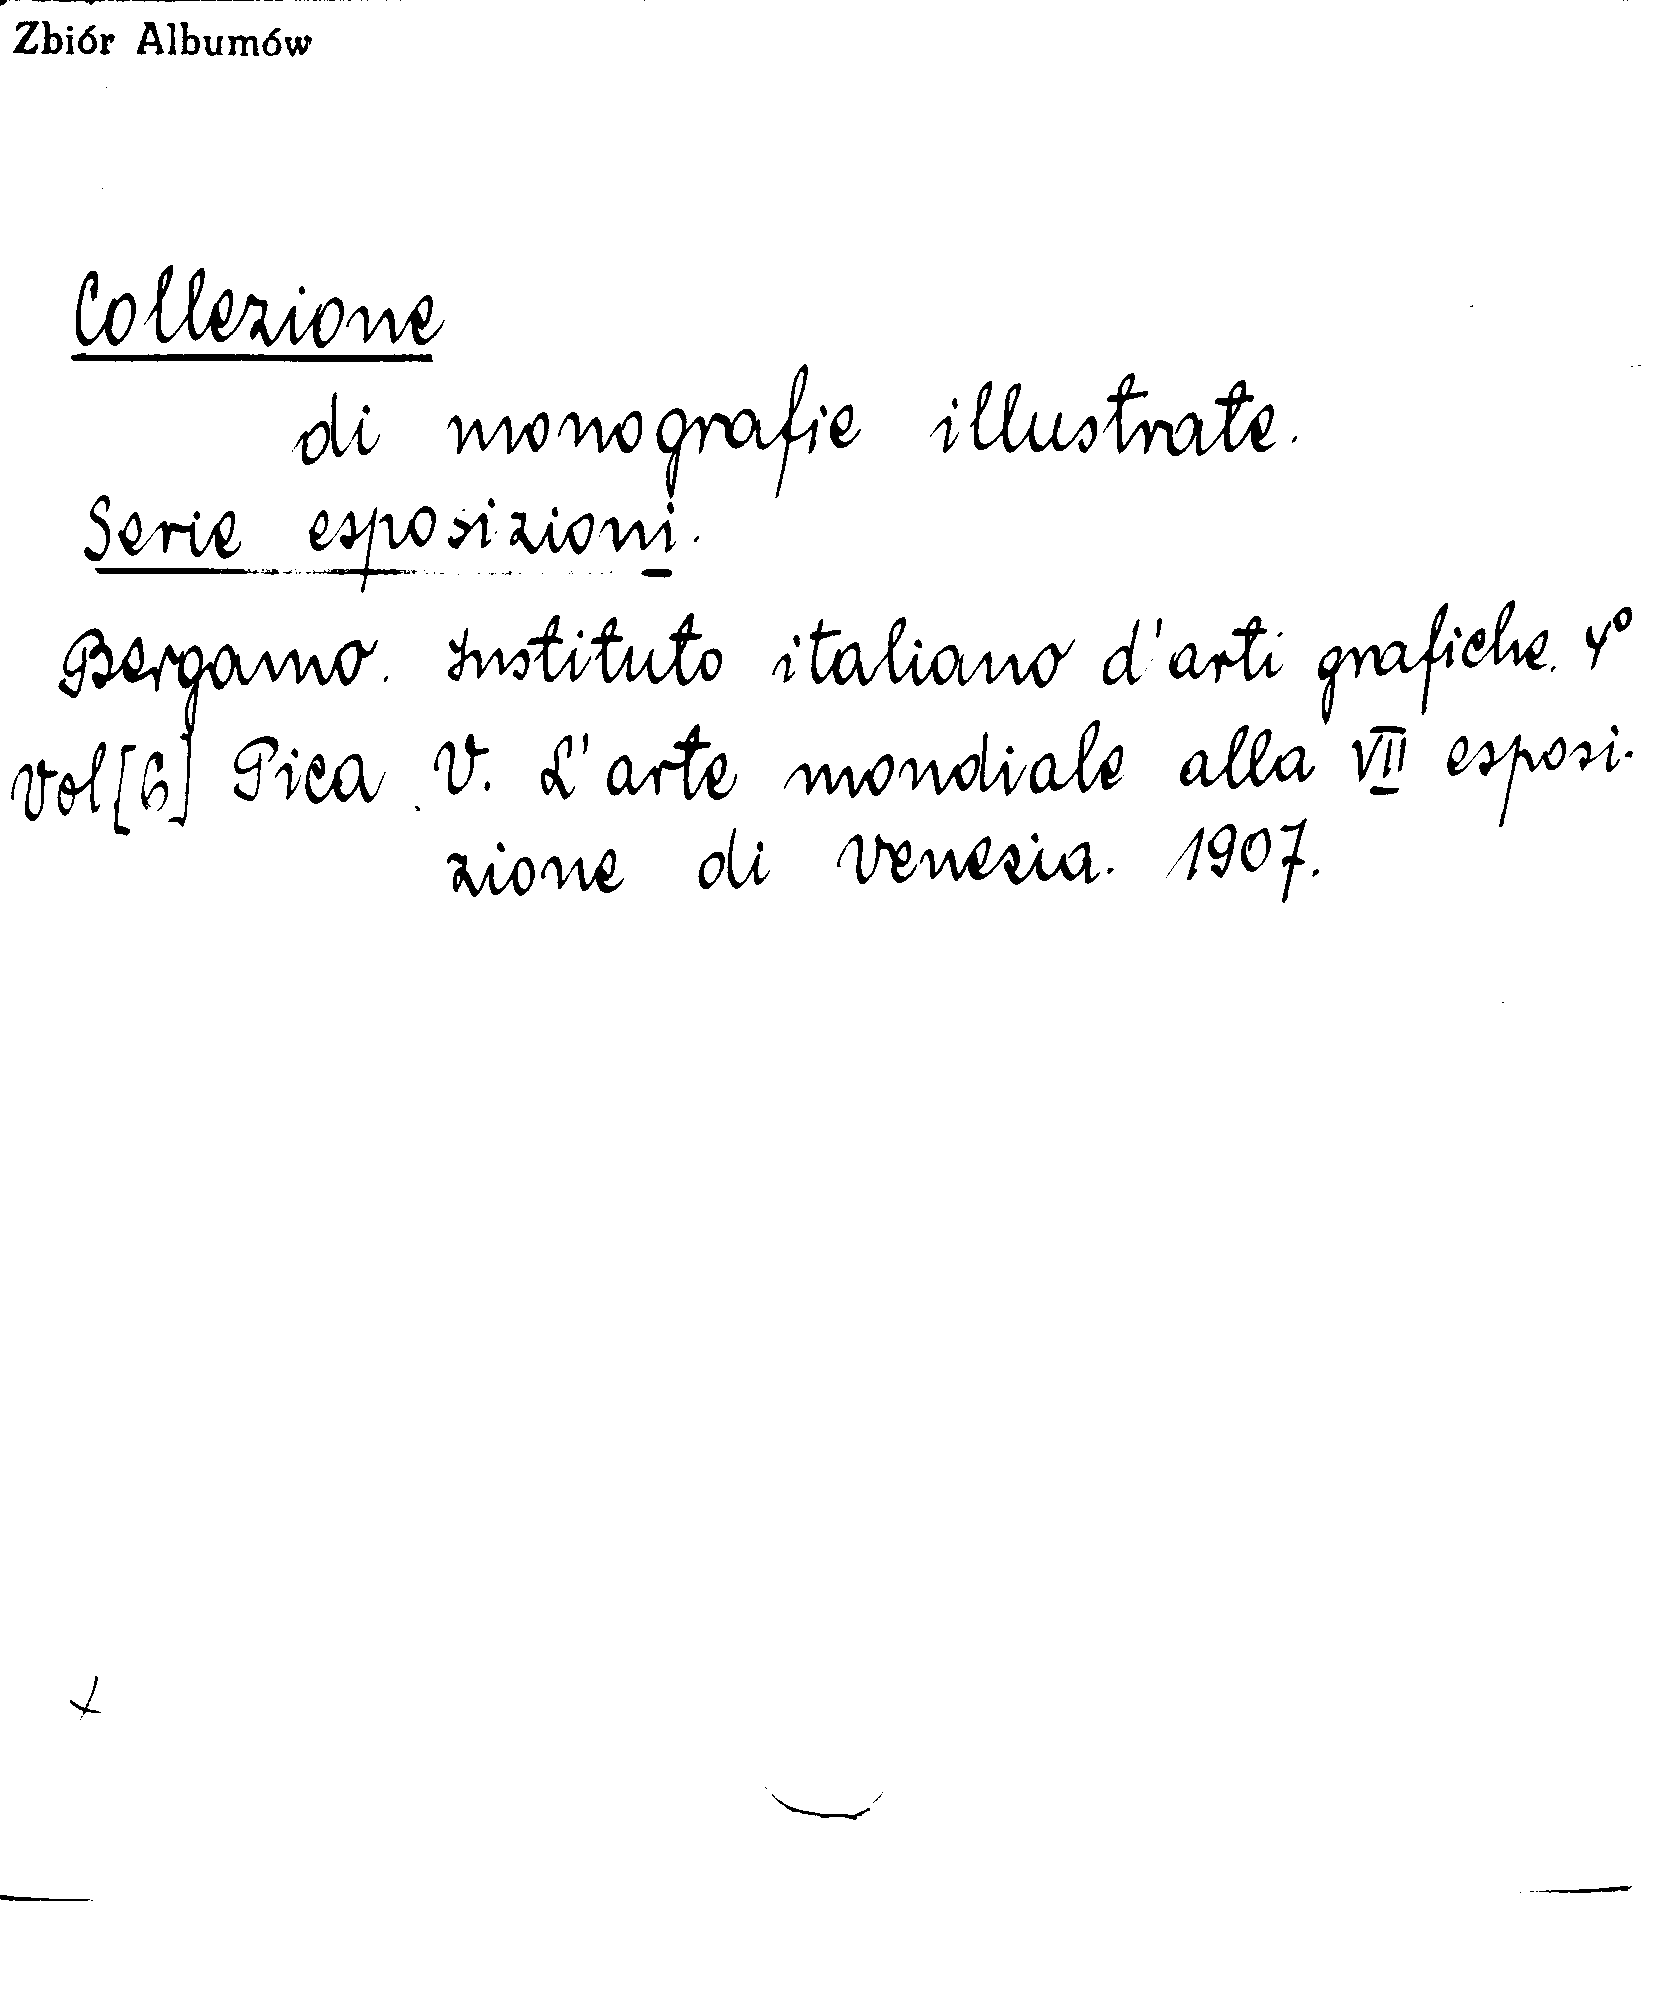 Zbiór Albumów
Collezione
di monografie illustrate.
Serie esposizioni.
Bergamo. Instituto italiano d'arti grafiche. 4°
Vol[6] Pica V. L'arte mondiale alla VII esposi-
zione di Venezia. 1907.